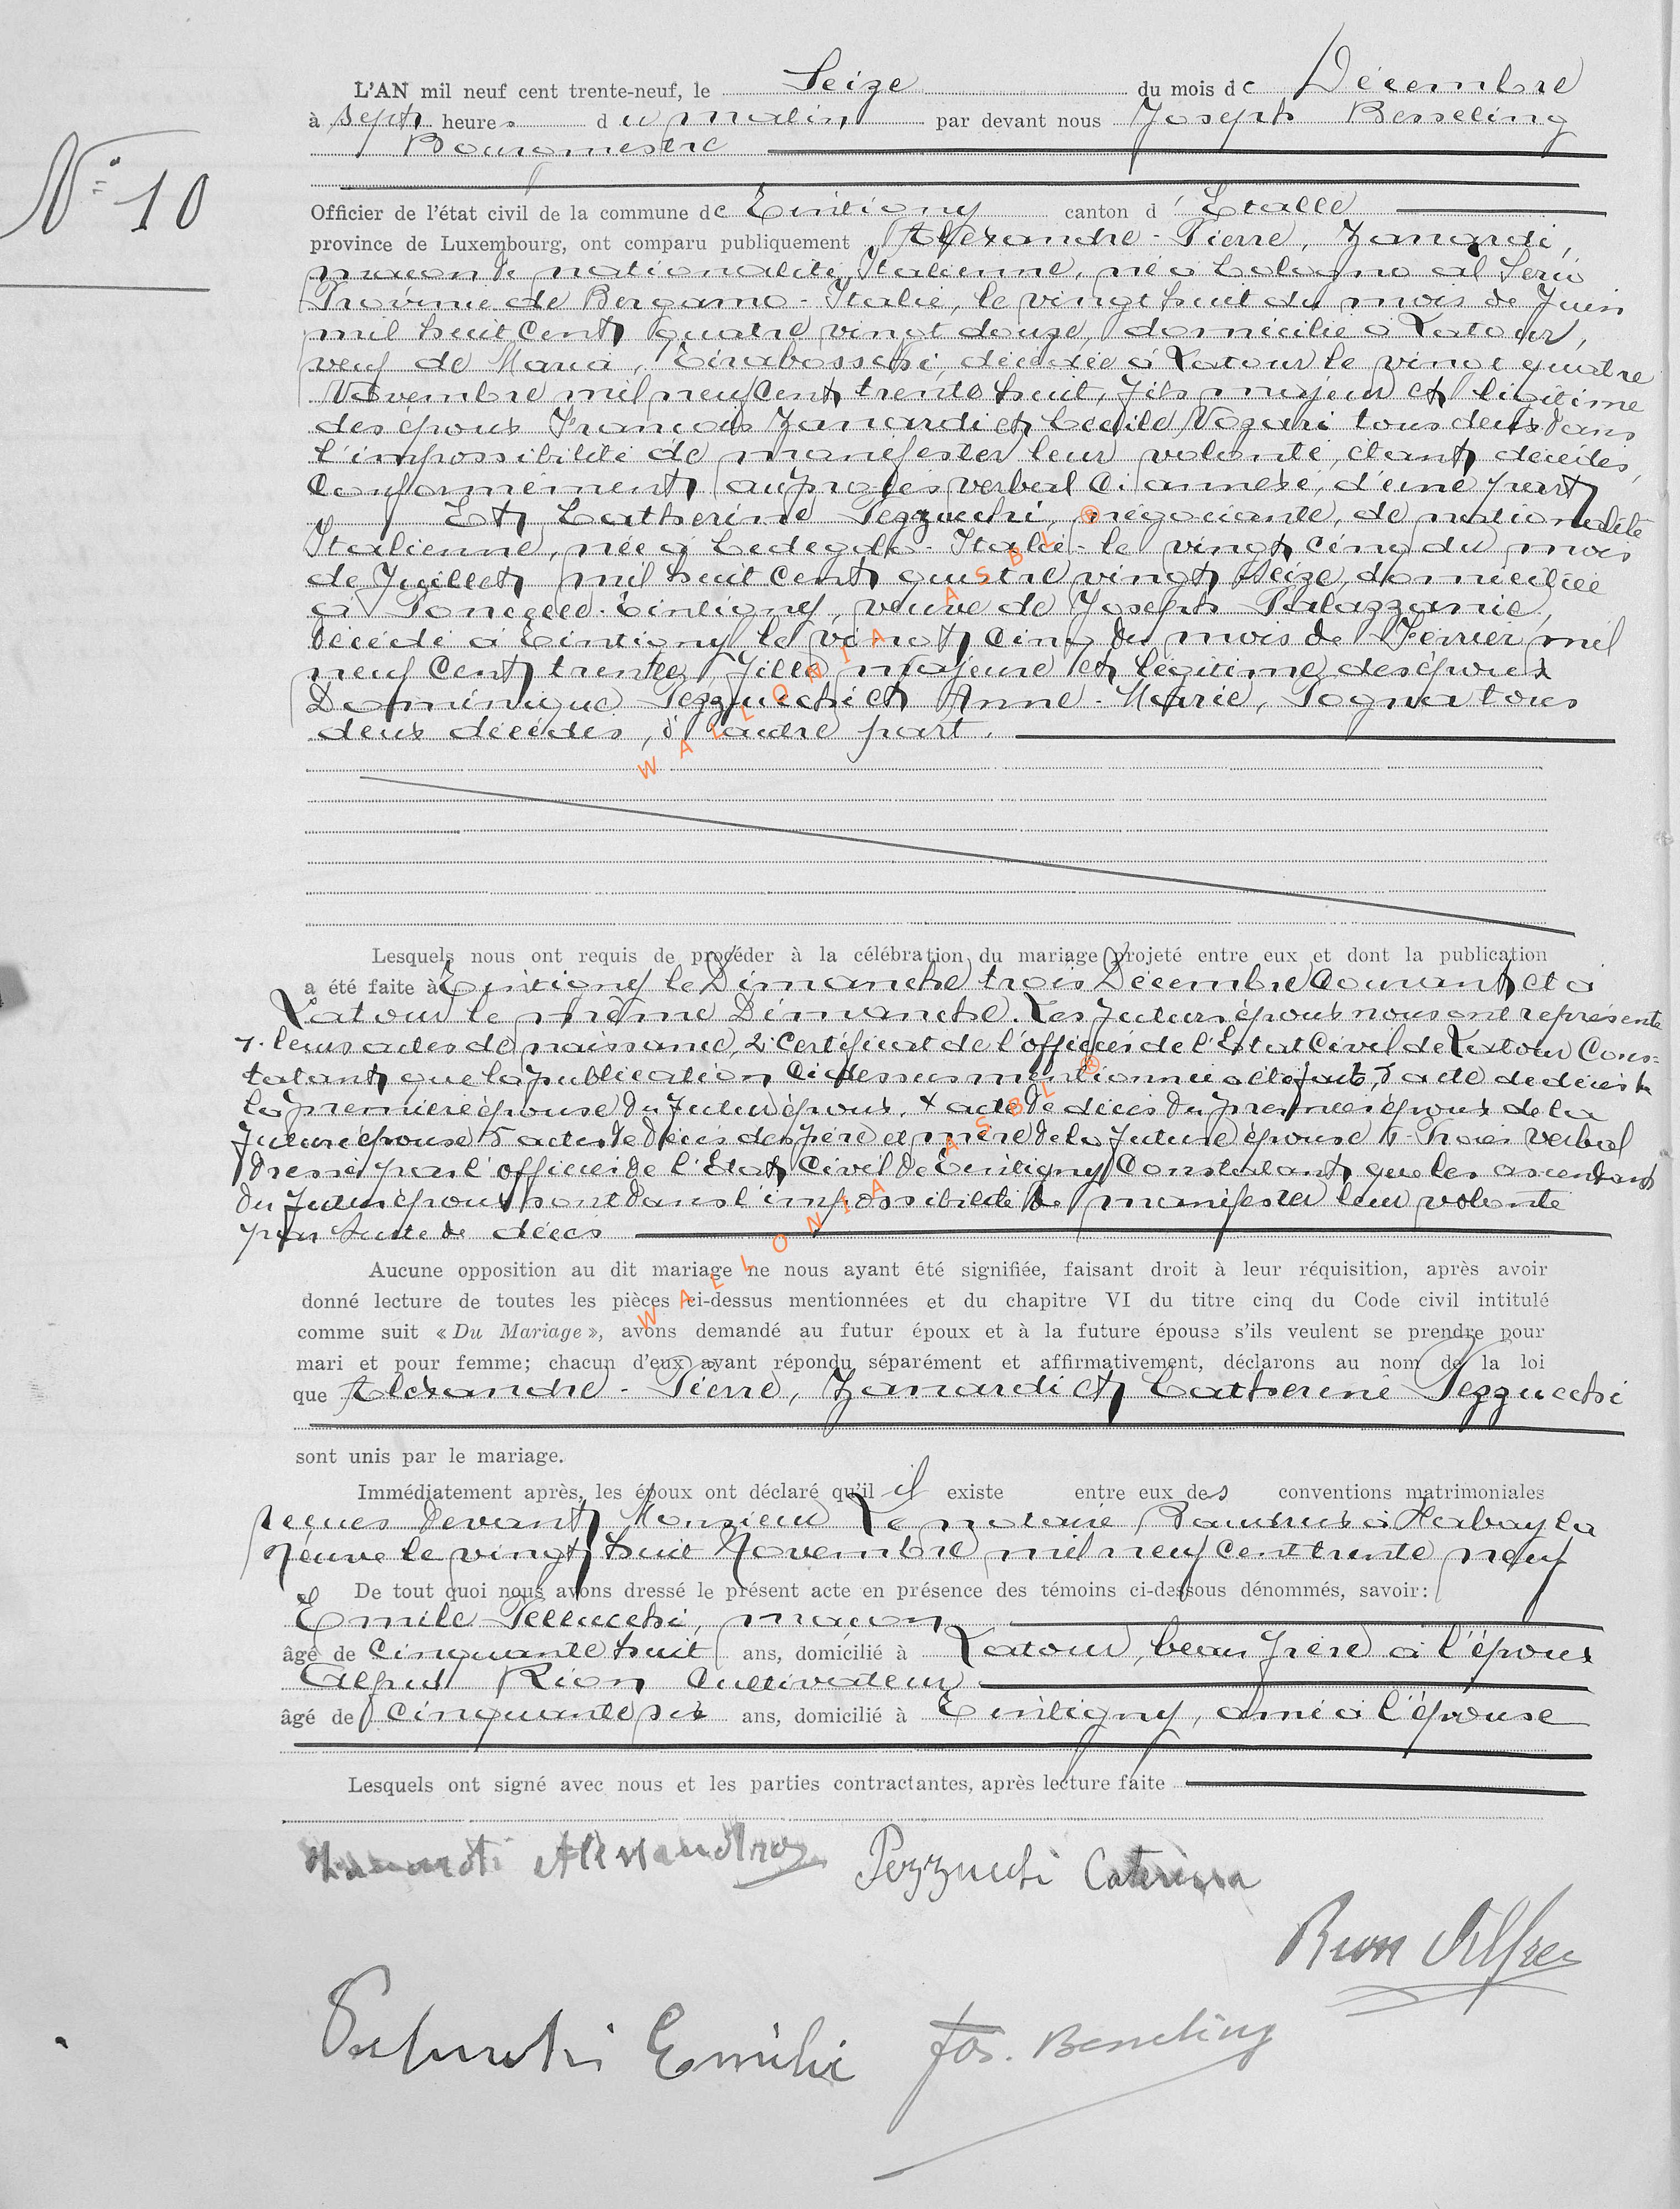 L'AN mil neuf cent trente-neuf, le Seize du mois de Décembre
à sept heures du matin par devant nous Joseph Besseling
Bourgmestre
N° 10
Officier de l'état civil de la commune de Tintigny canton d'Etalle
province de Luxembourg, ont comparu publiquement Alexandre-Pierre, Zanardi,
maçon de nationalité Italienne, né à Cologno al Serio
Province de Bergamo-Italie, le vingt huit du mois de Juin
mil huit cent quatre vingt douze, domicilié à Latour,
veuf de Maria, Tirabosschi, décédée à Latour le vingt quatre
Novembre mil neuf cent trente huit, fils majeur et légitime
des époux François Zanardi et Cécile Nozari tous deux dans
l'impossibilité de manifester leur volonté, étant décédés,
Conformément au procès verbal ci annexé, d'une part
Et Catherine Pezzucchi, négociante, de nationalité
Italienne, née à Cedegolo-Italie-le vingt cinq du mois
de Juillet mil huit cent quatre vingt seize, domiciliée
à Poncelle-Tintigny, veuve de Joseph Palazzanie,
décédé à Tintigny le vingt cinq du mois de Février mil
neuf cent trente, fille majeure et légitime des époux
Dominique Pezzucchi et Anne-Marie, Pogna tous
deux décédés, d'autre part.
Lesquels nous ont requis de procéder à la célébration du mariage projeté entre eux et dont la publication
a été faite à Tintigny le Dimanche trois Décembre Courant et à
Latour le même Dimanche. Les futurs époux nous ont représenté
1. leurs actes de naissance, 2. Certificat de l'officier de l'Etat Civil de Latour Cons=
tatant que la publication Ci dessus mentionnée a été faite, 3 acte de décès de
la première épouse du futur époux, 4 acte de décès du premier époux de la
future épouse 5 actes de décès des père et mère de la future épouse 6-Procès verbal
dressé par l'officier de l'Etat Civil de Tintigny Constatant que les ascendants
du futur époux sont dans l'impossibilité de manifester leur volonté
par suite de décès
Aucune opposition au dit mariage ne nous ayant été signifiée, faisant droit à leur réquisition, après avoir
donné lecture de toutes les pièces ci-dessus mentionnées et du chapitre VI du titre cinq du Code civil intitulé
comme suit « Du Mariage », avons demandé au futur époux et à la future épouse s'ils veulent se prendre pour
mari et pour femme; chacun d'eux ayant répondu séparément et affirmativement, déclarons au nom de la loi
que Alexandre-Pierre, Zanardi et Catherine Pezzucchi
sont unis par le mariage.
Immédiatement après, les époux ont déclaré qu'il il existe entre eux des conventions matrimoniales
reçues devant Monsieur Le notaire à Habay la
Neuve le vingt huit Novembre mil neuf cent trente neuf
De tout quoi nous avons dressé le présent acte en présence des témoins ci-dessous dénommés, savoir:
Emile Pellucchi, maçon
âgé de cinquante huit ans, domicilié à Latour, beau frère à l'époux
Alfred Rion Cultivateur
âgé de cinquante six ans, domicilié à Tintigny, ami à l'épouse
Lesquels ont signé avec nous et les parties contractantes, après lecture faite
Zanardi Alessandro Pezzucchi Caterina
Rion Alfred
Emilio Jos. Besseling
WALLONIA ASBL ®
WALLONIA ASBL ®